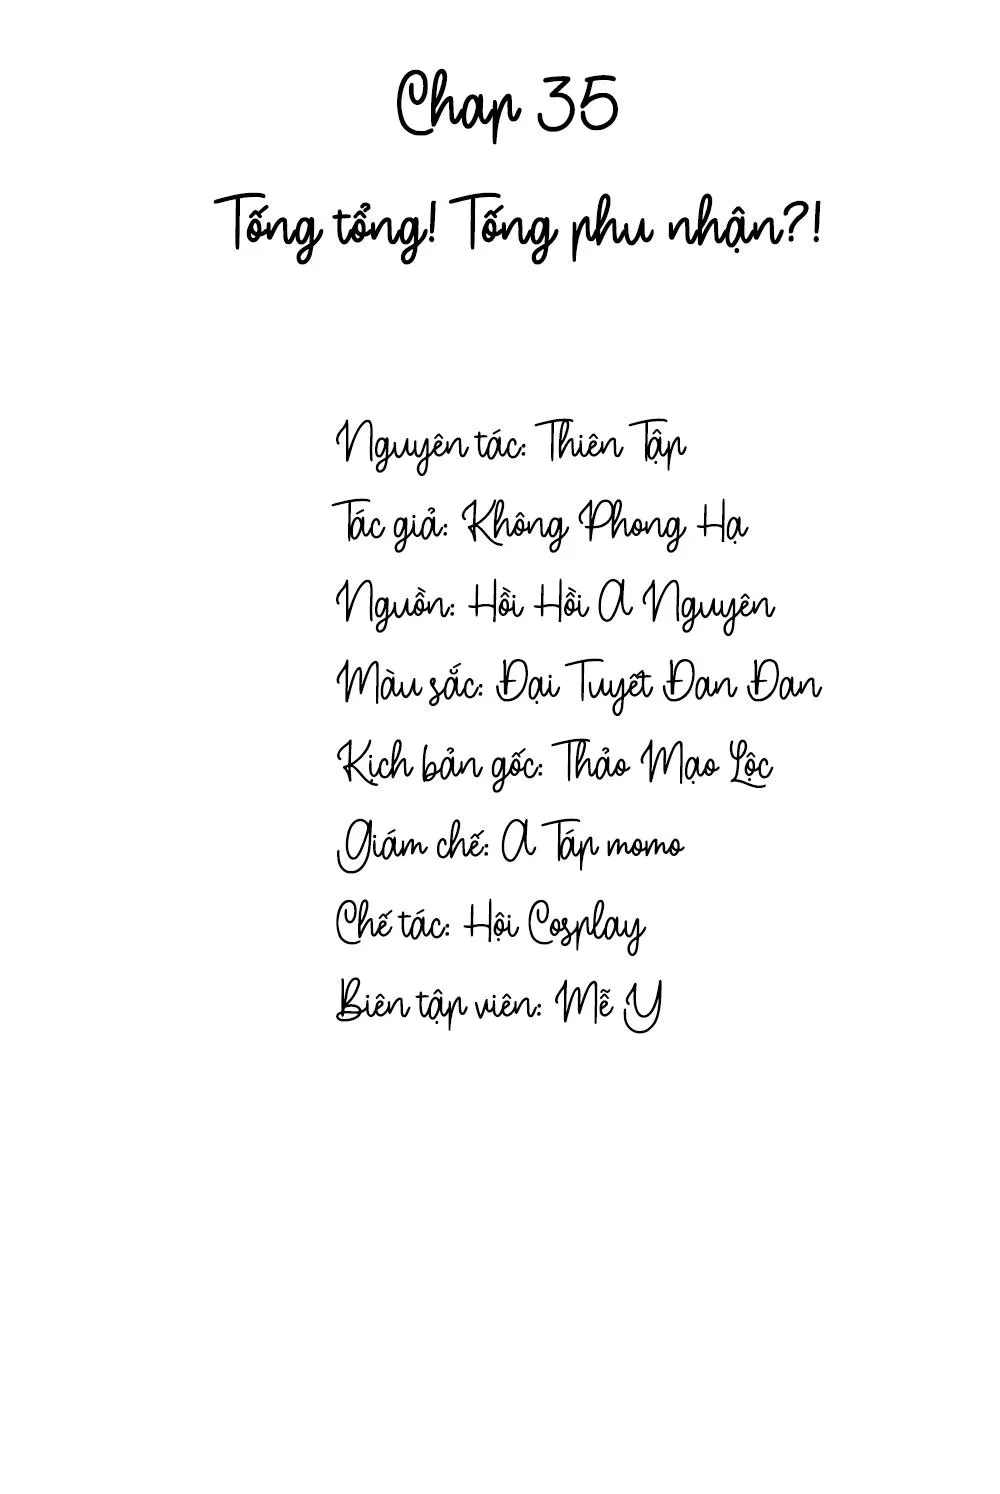 Chap 35
Tống tổng! Tống phu nhận?!
Nguyên tác: Thiên Tập
Tác giả: Không Phong Hạ
Nguồn: Hồi Hồi A Nguyên
Màu sắc: Đại Tuyết Đan Đan
Kịch bản gốc: Thảo Mạo Lộc
Giám chế: A Táp momo
Chế tác: Hội Cosplay
Biên tập viên: Mễ Y